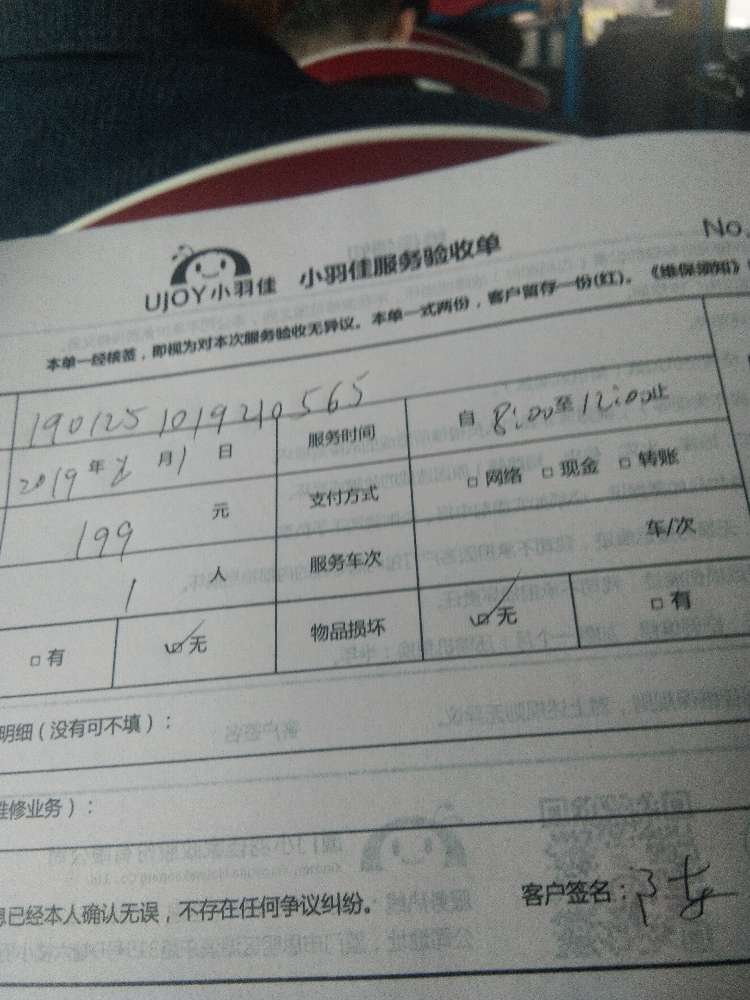 No.
UJOY小羽佳 小羽佳服务验收单
本单一经核签，即视为对本次服务验收无异议。本单一式两份，客户留存一份(红)。《维保须知》
1901251019210565 服务时间 自 8:00 至 12:00 止
2019 年 2 月 1 日 支付方式 □ 网络 □ 现金 □ 转账
199 元 服务车次 车/次
1 人
□ 有 ☑ 无 物品损坏 ☑ 无 □ 有
明细（没有可不填）：
维修业务）：
息已经本人确认无误，不存在任何争议纠纷。 客户签名：